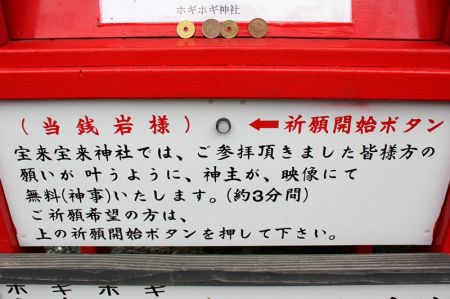 ホギホギ神社
(当銭岩様) ←祈願開始ボタン
宝来宝来神社では、ご参拝頂きました皆様方の
願いが 叶うように、神主が、映像にて
無料(神事)いたします。(約3分間)
ご祈願希望の方は、
上の祈願開始ボタンを押して下さい。
ホギ ホギ